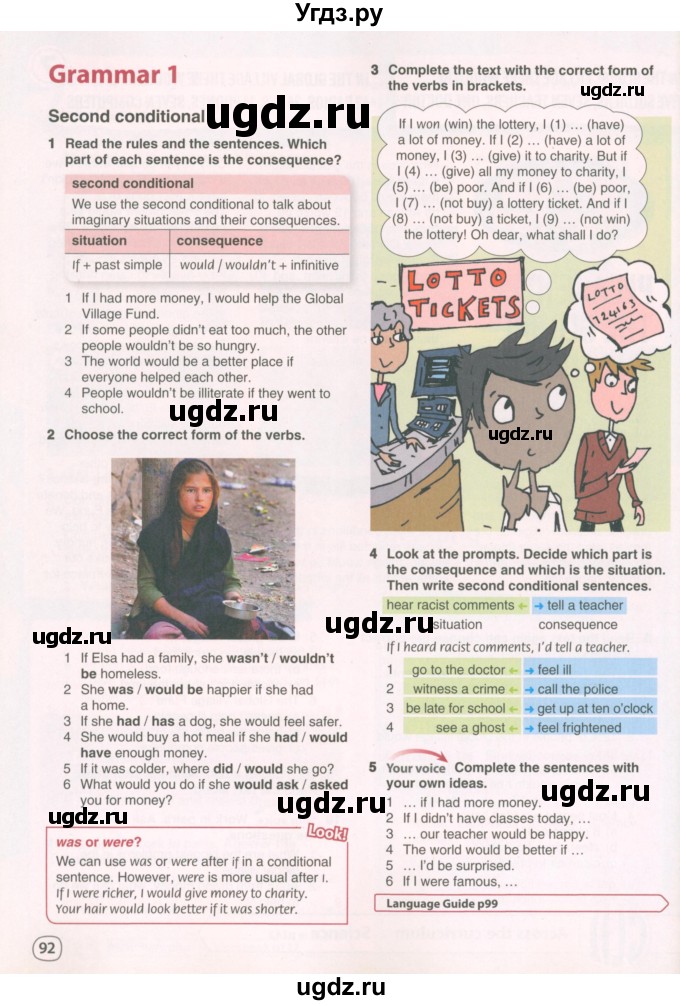 Угдз.ру
Grammar 1
Second conditional
1 Read the rules and the sentences. Which
part of each sentence is the consequence?
second conditional
We use the second conditional to talk about
imaginary situations and their consequences.
situation consequence
If + past simple would / wouldn't + infinitive
1 If I had more money, I would help the Global
Village Fund.
2 If some people didn't eat too much, the other
people wouldn't be so hungry.
3 The world would be a better place if
everyone helped each other.
4 People wouldn't be illiterate if they went to
school.
ugdz.ru
2 Choose the correct form of the verbs.
ugdz.ru
1 If Elsa had a family, she wasn't / wouldn't
be homeless.
2 She was / would be happier if she had
a home.
3 If she had / has a dog, she would feel safer.
4 She would buy a hot meal if she had / would
have enough money.
5 If it was colder, where did / would she go?
6 What would you do if she would ask / asked
you for money?
ugdz.ru
Look!
was or were?
We can use was or were after if in a conditional
sentence. However, were is more usual after I.
If I were richer, I would give money to charity.
Your hair would look better if it was shorter.
ugdz.ru
92
3 Complete the text with the correct form of
the verbs in brackets.
ugdz.ru
If I won (win) the lottery, I (1) … (have)
a lot of money. If I (2) … (have) a lot of
money, I (3) … (give) it to charity. But if
I (4) … (give) all my money to charity, I
(5) … (be) poor. And if I (6) … (be) poor,
I (7) … (not buy) a lottery ticket. And if I
(8) … (not buy) a ticket, I (9) … (not win)
the lottery! Oh dear, what shall I do?
LOTTO
TICKETS
LOTTO
724163
ugdz.ru
4 Look at the prompts. Decide which part is
the consequence and which is the situation.
Then write second conditional sentences.
hear racist comments ← → tell a teacher
situation consequence
ugdz.ru
If I heard racist comments, I'd tell a teacher.
1 go to the doctor ← → feel ill
2 witness a crime ← → call the police
3 be late for school ← → get up at ten o'clock
4 see a ghost ← → feel frightened
5 Your voice Complete the sentences with
your own ideas.
ugdz.ru
1 … if I had more money.
2 If I didn't have classes today, …
3 … our teacher would be happy.
4 The world would be better if …
5 … I'd be surprised.
6 If I were famous, …
Language Guide p99
ugdz.ru
ugdz.ru